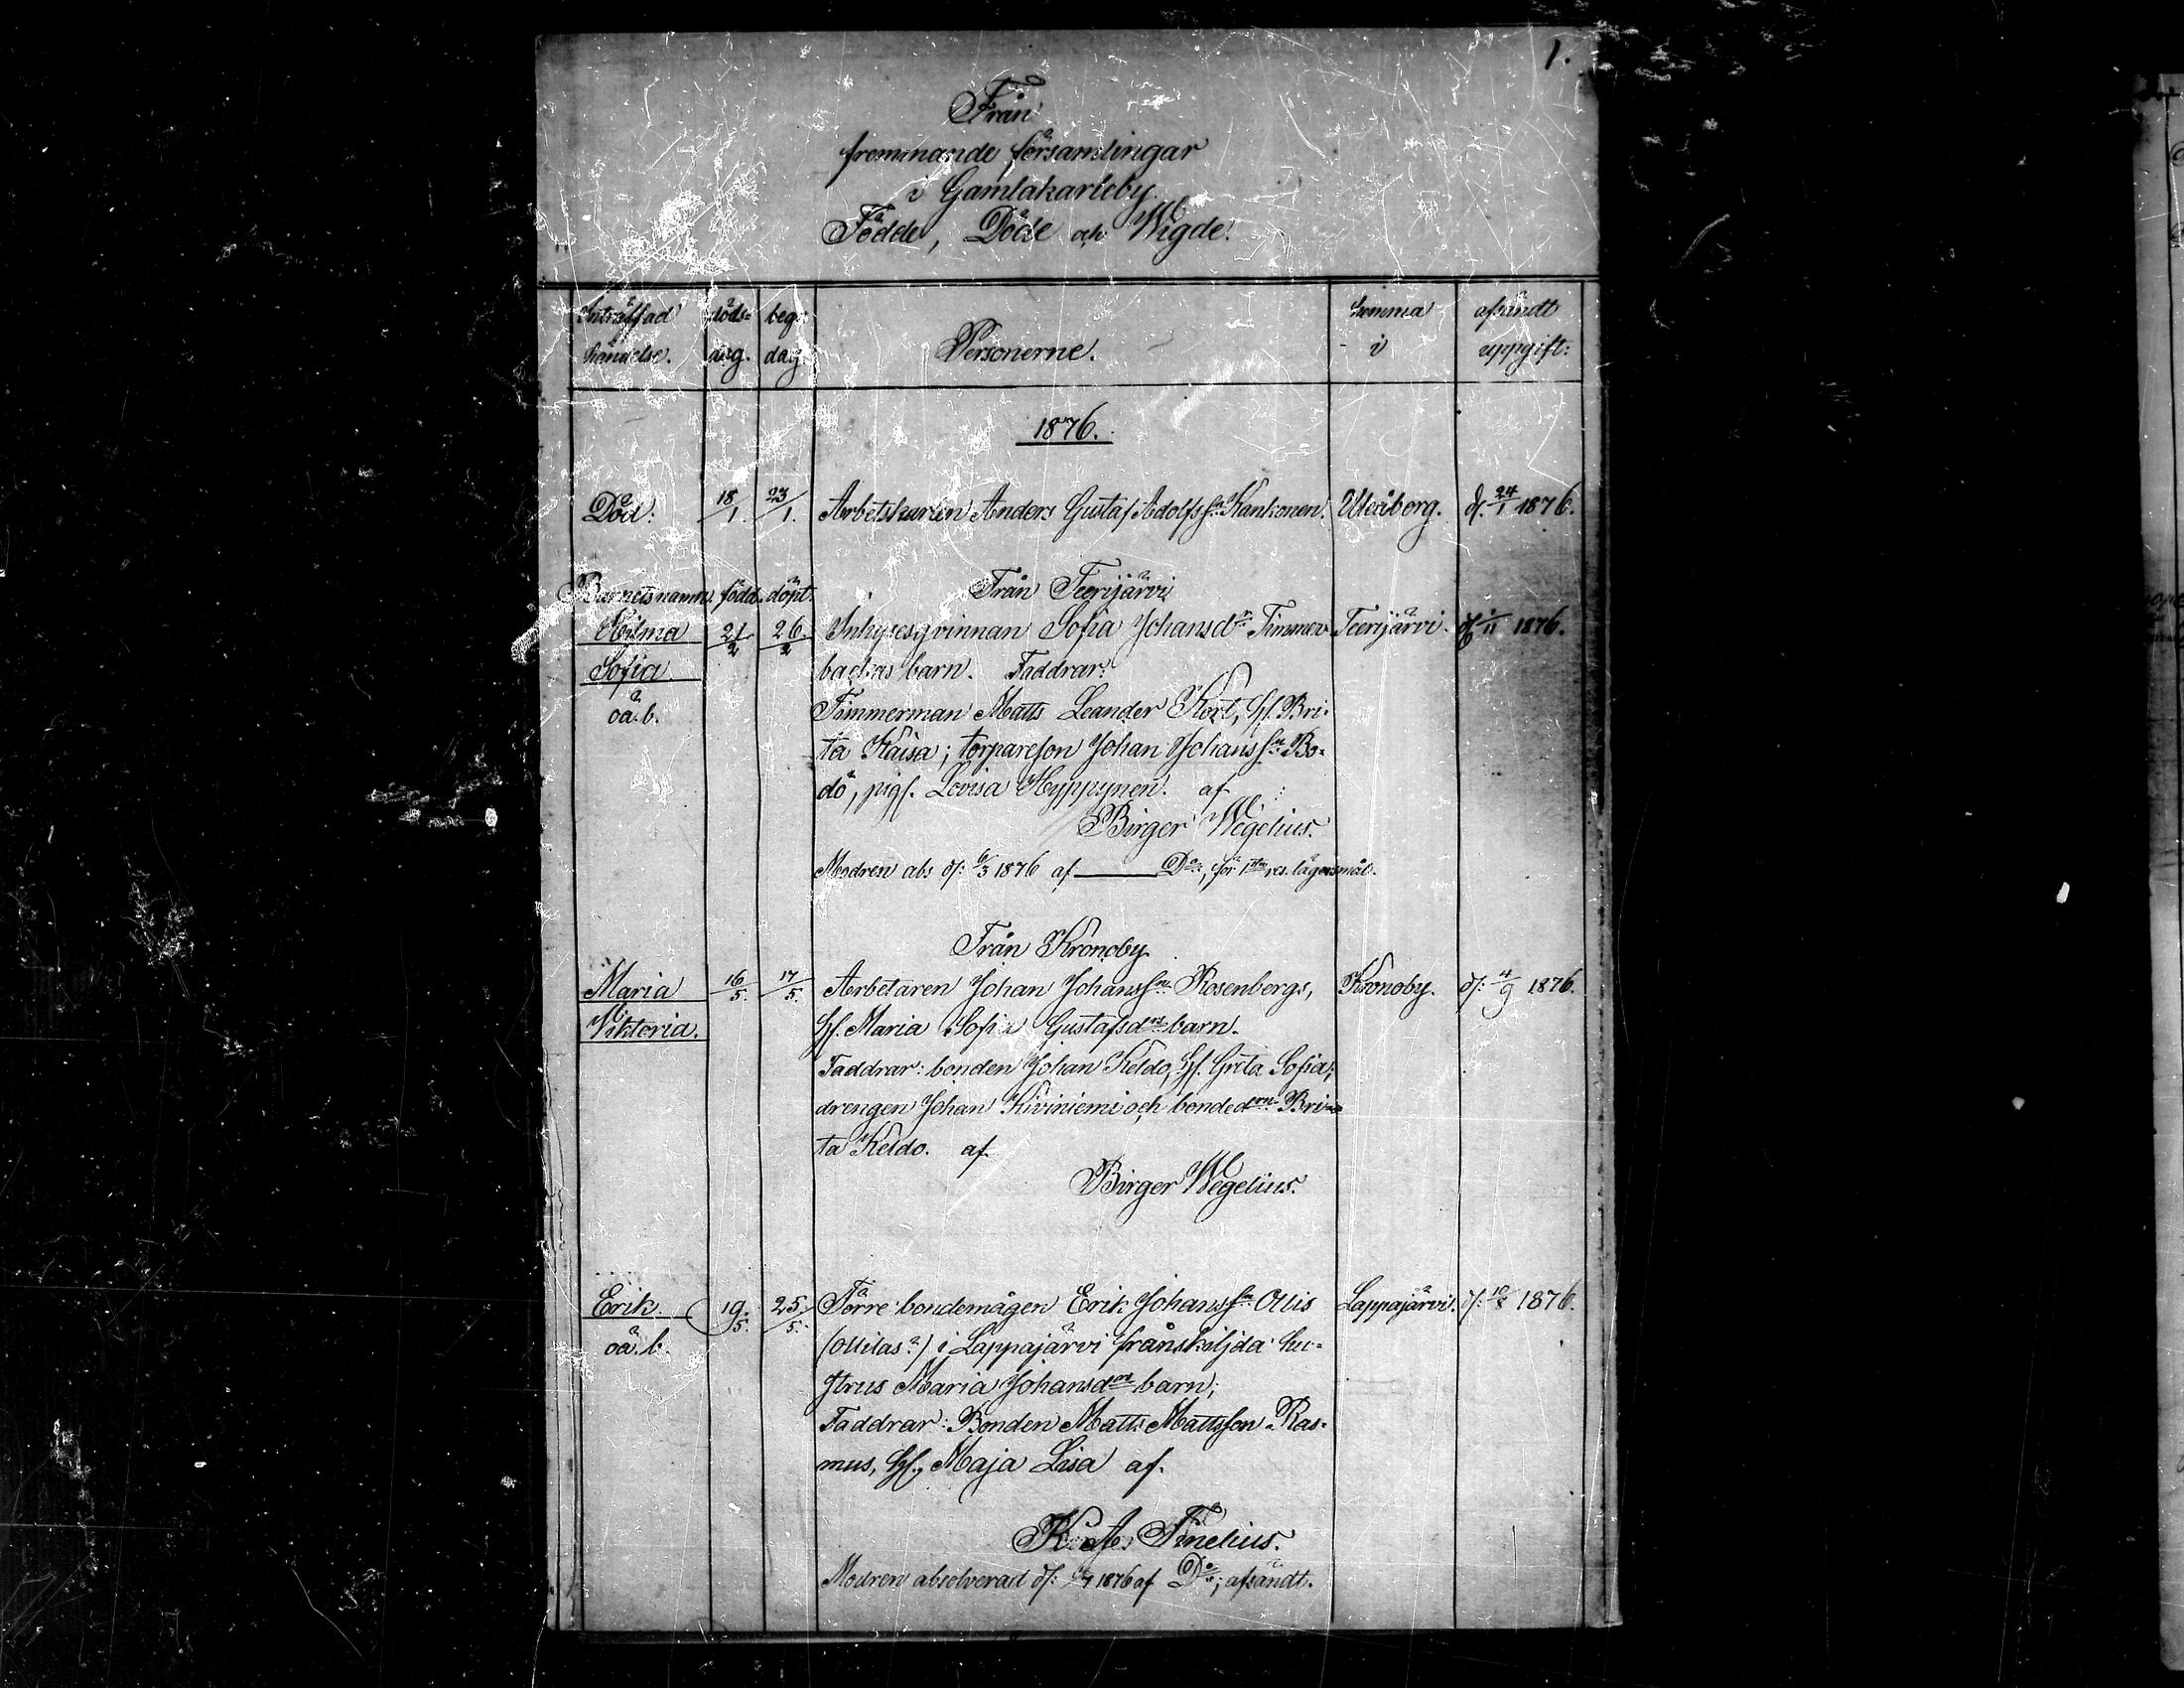 1.
Från
fremmande församlingar
i Gamlakarleby
Födde, Döde och Wigde.
Inträffad händelse. döds= dag. begr. dag. Personerne. hemma i afsändt uppgift:
1876.
Död: 18/1. 23/1. Arbetskarlen Anders Gustaf Adolfss:n Kankonen. Uleåborg. d/: 24/1 1876.
Barnets namn. född. döpt. Från Teerijärvi
Hilma 21/2 26/2 Inhysesqvinnan Sofia Johansd:r Timmer Teerijärvi. 1876.
Sofia backas barn. Faddrar:
oä. b. Timmerman Matts Leander Kort, Hf. Bri-
ta Kaisa; torpareson Johan Johanss:n Bo-
dö, pigf. Lovisa Hyppynen. af
Birger Wegelius.
Modren abs d/: 6/3 1876 af ——— D:o, för 1:sta res. lägersmål.
Från Kronoby.
Maria 16/5. 17/5. Arbetaren Johan Johanss:n Rosenbergs, Kronoby. d/: 4/9 1876.
Viktoria. Hf. Maria Sofia Gustafsd:rs barn.
Faddrar: bonden Johan Keldo, Hf. Greta Sofia;
drengen Johan Kiviniemi och bonded:rn Bri-
ta Keldo. af.
Birger Wegelius.
Erik 19/5. 25/5. Förre bondemågen Erik Johanss:n Ollis Lappajärvi. d/: 10/8 1876.
oä. b. (Ollilas?) i Lappajärvi frånskiljda hu-
strus Maria Johansd:rs barn;
Faddrar: Bonden Matts Mattsson Ras-
mus, Hf., Maja Lisa af.
K. A. Finelius.
Modren absolverad d/: 1876 af D:o; afsändt.